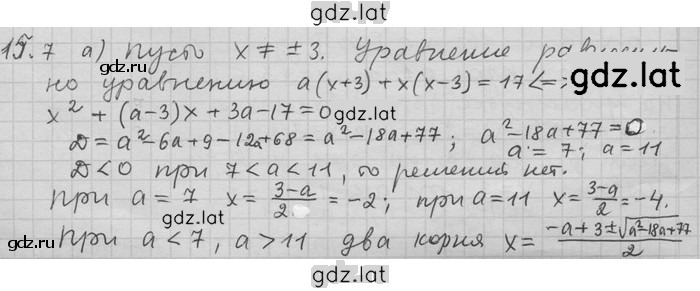 gdz.lat
15.7 а) Пусть x ≠ ±3. Уравнение
но уравнению a(x+3) + x(x-3) = 17 <=>
gdz.lat
x² + (a-3)x + 3a-17=0
gdz.lat
D = a²-6a+9-12a+68 = a²-18a+77; a²-18a+77=0
a = 7; a=11
D<0 при 7<a<11, то решений нет.
gdz.lat
При a = 7 x = \frac{3-a}{2} = -2; при a=11 x = \frac{3-a}{2} = -4.
gdz.lat
При a<7, a>11 два корня x = \frac{-a+3±√(a²-18a+77)}{2}
gdz.lat